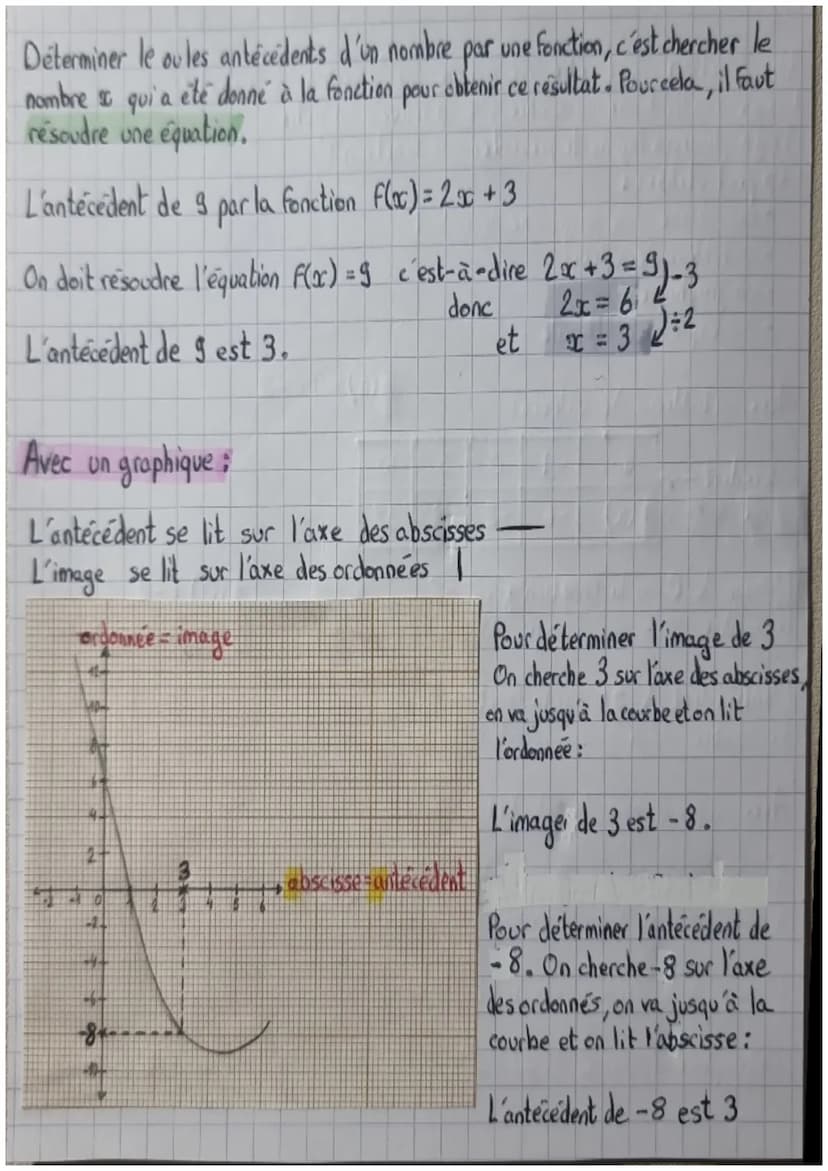 Déterminer le ou les antécédents d'un nombre par une fonction, c'est chercher le
nombre x qui a été donné à la fonction pour obtenir ce résultat. Pour cela, il faut
résoudre une équation.
L'antécédent de 9 par la fonction f(x) = 2x + 3
On doit résoudre l'équation f(x) = 9 c'est-à-dire 2x + 3 = 9 -3
donc 2x = 6 ÷2
et x = 3
L'antécédent de 9 est 3.
Avec un graphique :
L'antécédent se lit sur l'axe des abscisses —
L'image se lit sur l'axe des ordonnées |
ordonnée = image
8
6
4
2
3
abscisse = antécédent
-2 -1 0 1 2 3 4 5 6
-2
-4
-6
-8
-10
Pour déterminer l'image de 3
On cherche 3 sur l'axe des abscisses,
on va jusqu'à la courbe et on lit
l'ordonnée :
L'image de 3 est -8.
Pour déterminer l'antécédent de
-8. On cherche -8 sur l'axe
des ordonnés, on va jusqu'à la
courbe et on lit l'abscisse :
L'antécédent de -8 est 3